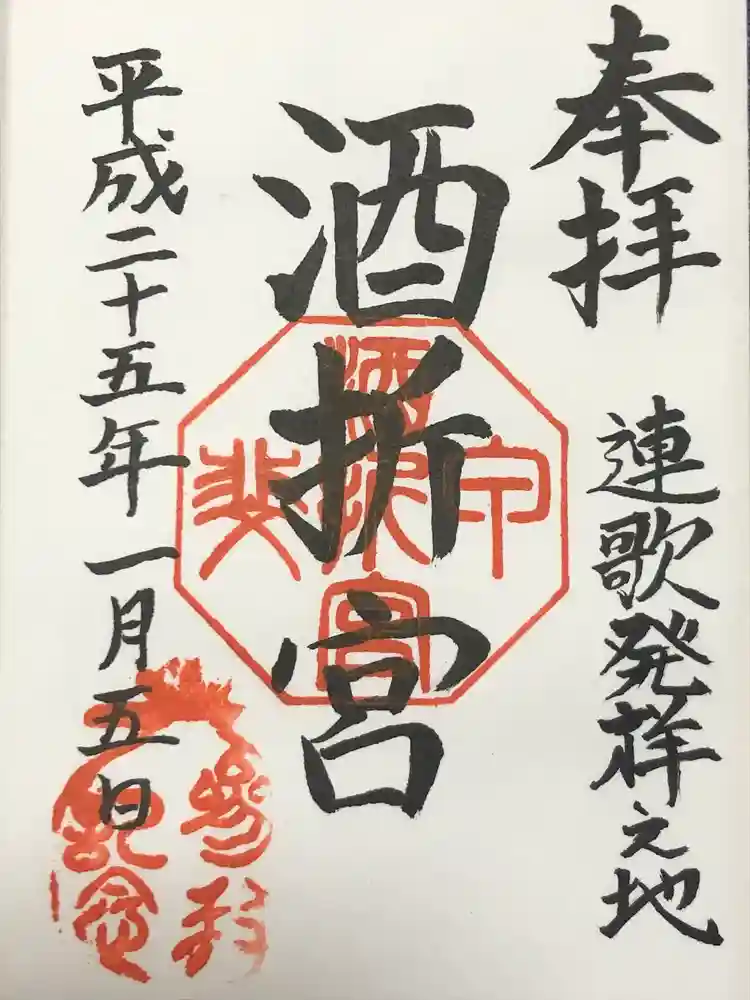 奉拝
連歌発祥之地
酒折宮
平成二十五年一月五日
参拝
記念